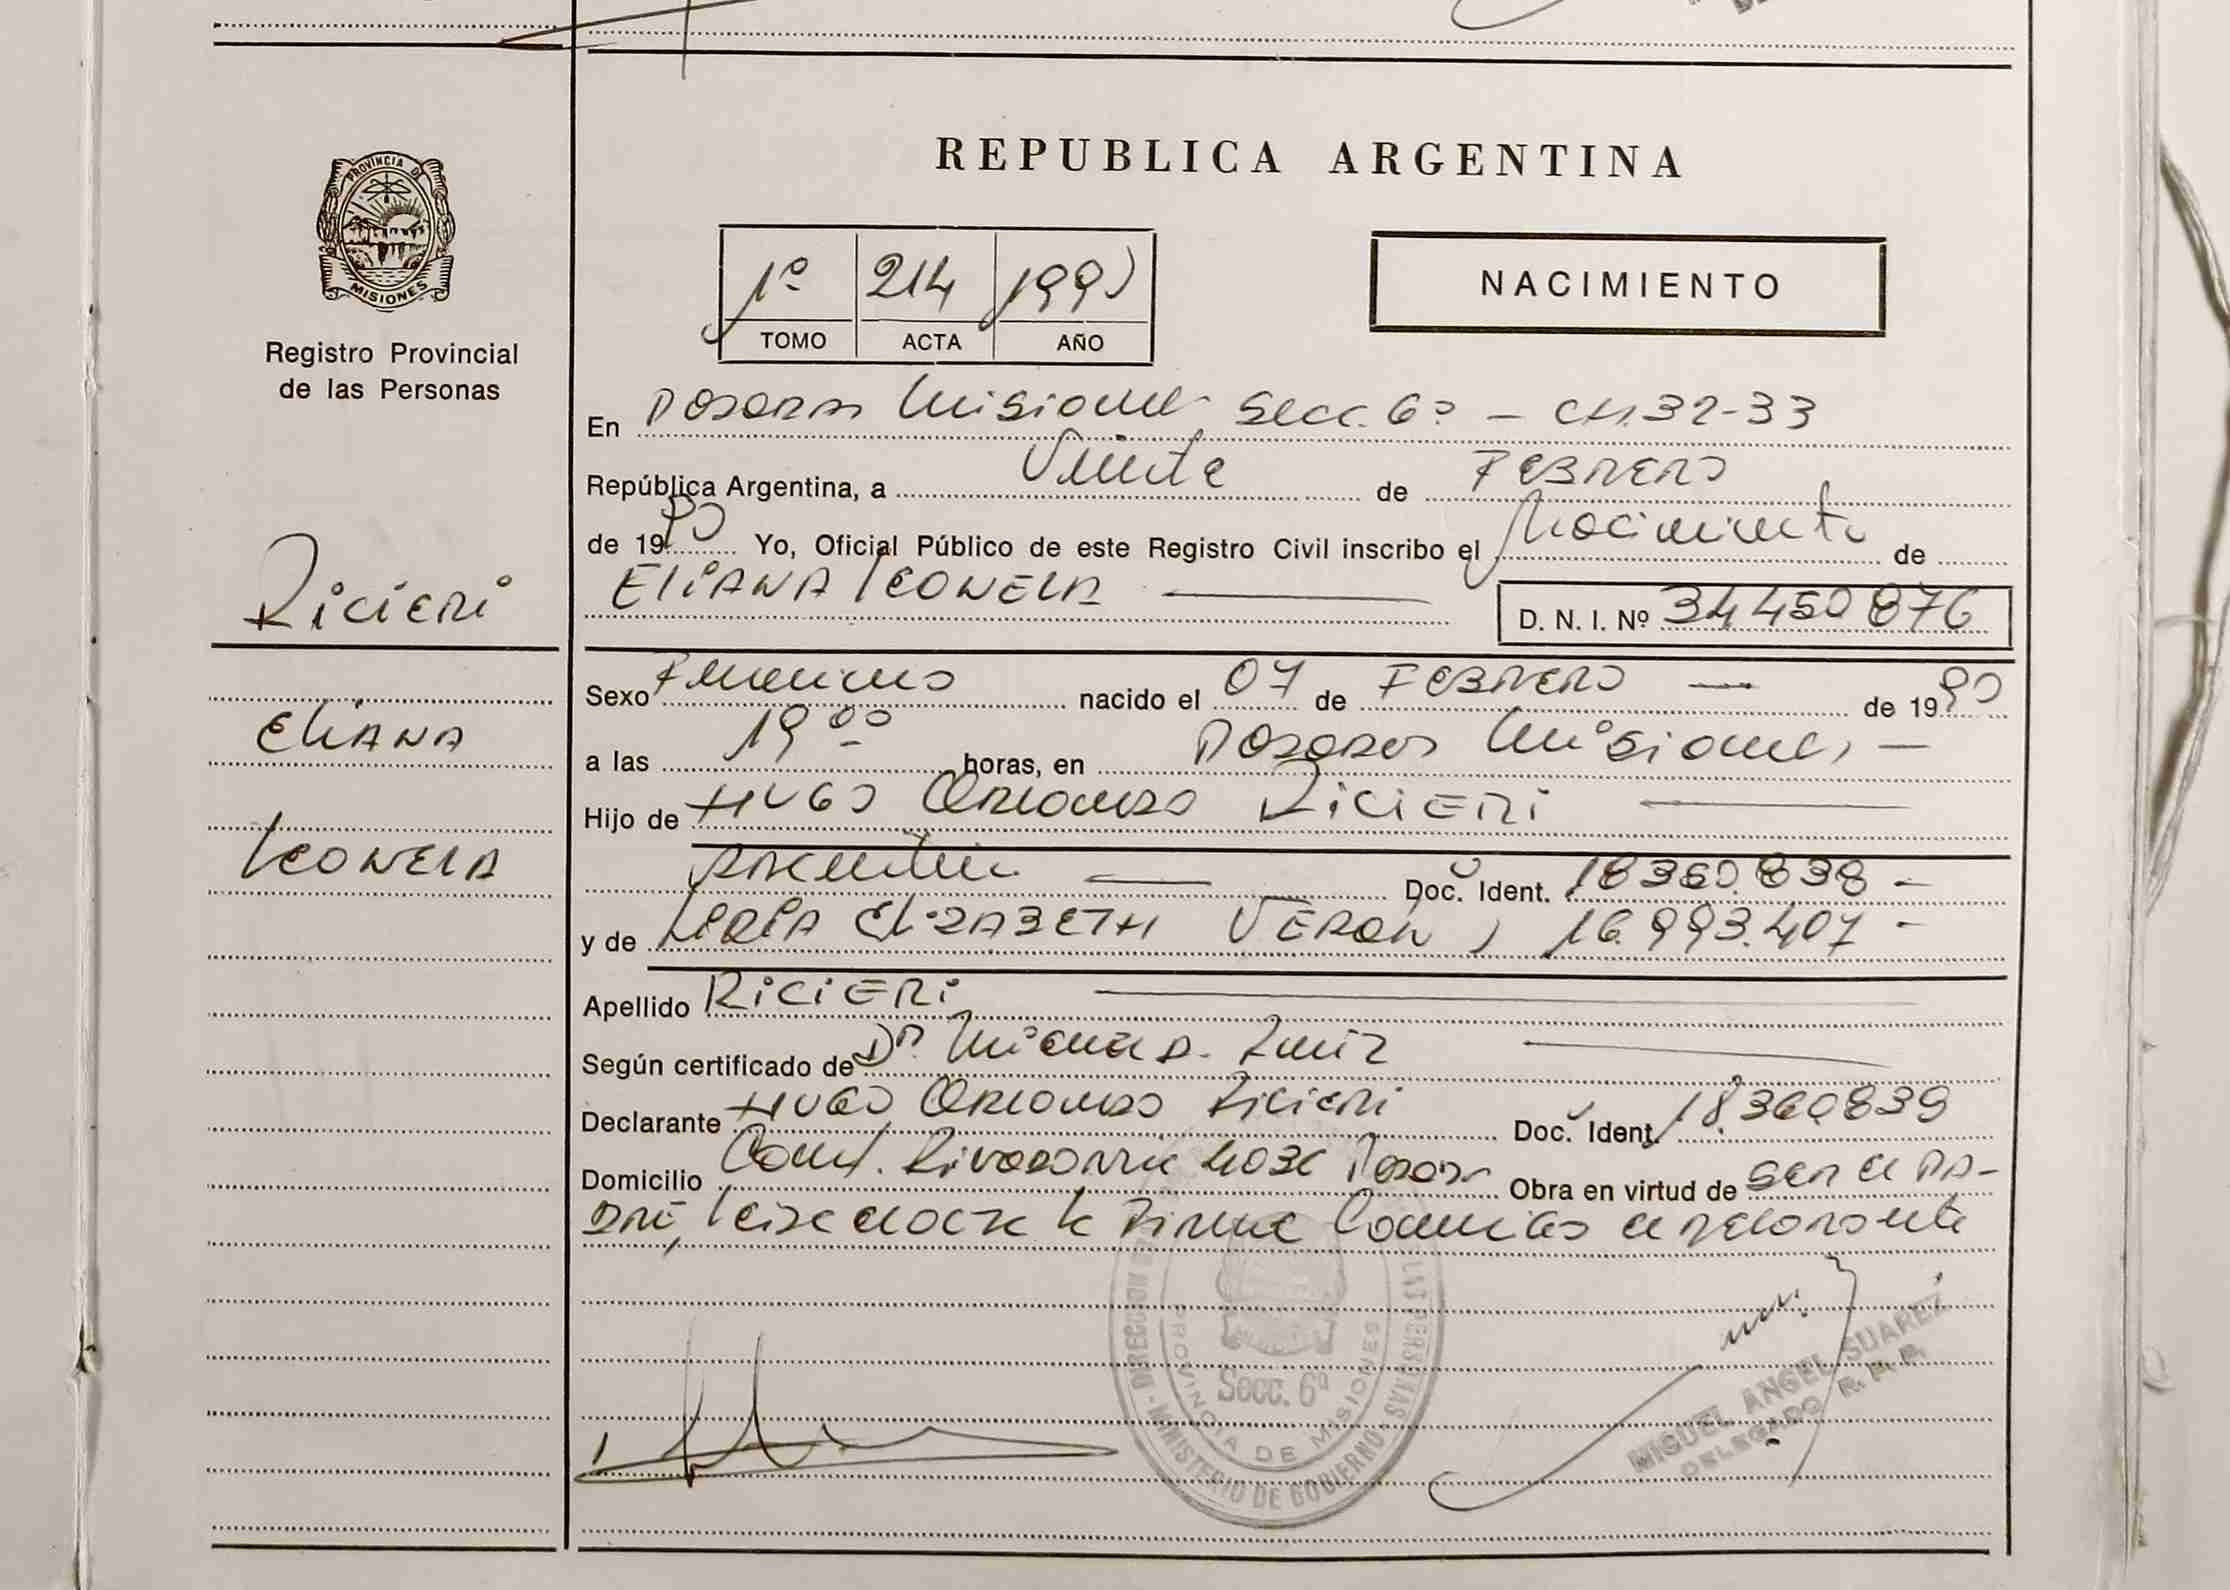 REPUBLICA ARGENTINA
PROVINCIA D
MISIONES
Registro Provincial
de las Personas
1º 214
TOMO ACTA AÑO
NACIMIENTO
En Posadas Misiones Secc. 6º - CH.32-33
República Argentina, a Veinte de FEBRERO
de 1990 Yo, Oficial Público de este Registro Civil inscribo el Nacimiento de
ELIANA LEONELA
D. N. I. Nº 34450876
Ricieri
ELIANA
LEONELA
Sexo Femenino nacido el 07 de FEBRERO — de 1990
a las 19 00 horas, en Posadas Misiones, —
Hijo de HUGO ORLANDO RICIERI
Argentino — Doc. Ident. 18360.838 -
y de ELIZABETH VERON, 16.993.407 -
Apellido RICIERI
Según certificado de Dr. Ruiz
Declarante HUGO ORLANDO RICIERI Doc. Ident. 18.360.839
Domicilio Comod. Rivadavia Posadas Obra en virtud de SER el PA-
DRE, Leida el acta la Firma Conmigo el declarante
DIRECCION LAS PERSONAS
MINISTERIO DE GOBIERNO
PROVINCIA DE MISIONES
Secc. 6º
MIGUEL ANGEL SUAREZ
DELEGADO R. P. P.